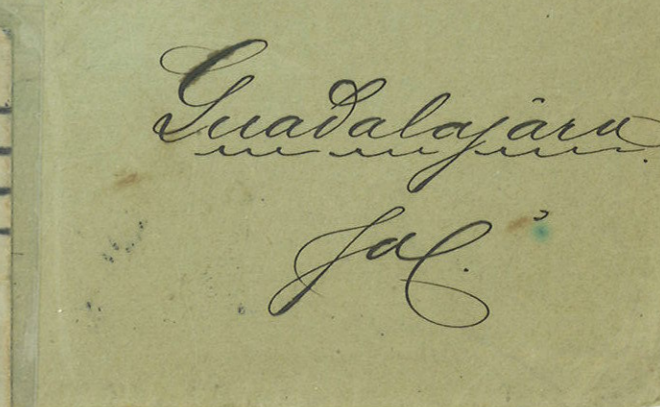 Guadalajara.
Jal.